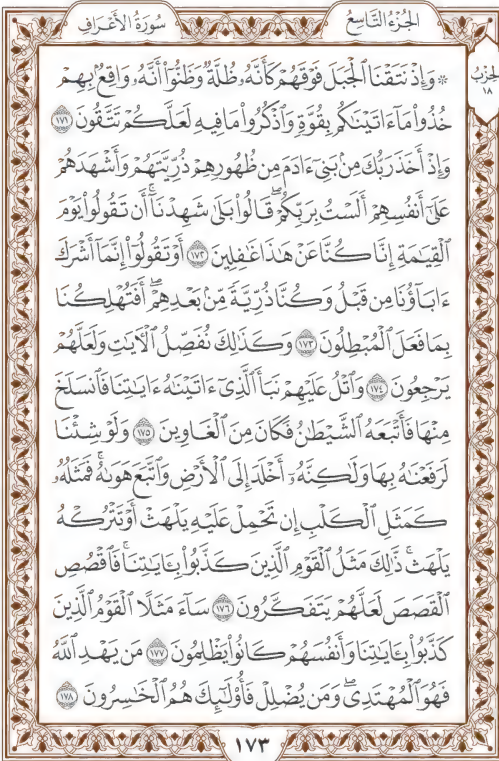 الجُزْءُ التَّاسِعُ
سُورَةُ الأَعْرَافِ
الحِزْبُ
١٨
۞ وَإِذْ نَتَقْنَا ٱلْجَبَلَ فَوْقَهُمْ كَأَنَّهُۥ ظُلَّةٌ وَظَنُّوٓا۟ أَنَّهُۥ وَاقِعٌۢ بِهِمْ
خُذُوا۟ مَآ ءَاتَيْنَٰكُم بِقُوَّةٍ وَٱذْكُرُوا۟ مَا فِيهِ لَعَلَّكُمْ تَتَّقُونَ ١٧١
وَإِذْ أَخَذَ رَبُّكَ مِنۢ بَنِىٓ ءَادَمَ مِن ظُهُورِهِمْ ذُرِّيَّتَهُمْ وَأَشْهَدَهُمْ
عَلَىٰٓ أَنفُسِهِمْ أَلَسْتُ بِرَبِّكُمْ ۖ قَالُوا۟ بَلَىٰ شَهِدْنَآ ۚ أَن تَقُولُوا۟ يَوْمَ
ٱلْقِيَٰمَةِ إِنَّا كُنَّا عَنْ هَٰذَا غَٰفِلِينَ ١٧٢ أَوْ تَقُولُوٓا۟ إِنَّمَآ أَشْرَكَ
ءَابَآؤُنَا مِن قَبْلُ وَكُنَّا ذُرِّيَّةً مِّنۢ بَعْدِهِمْ ۖ أَفَتُهْلِكُنَا
بِمَا فَعَلَ ٱلْمُبْطِلُونَ ١٧٣ وَكَذَٰلِكَ نُفَصِّلُ ٱلْءَايَٰتِ وَلَعَلَّهُمْ
يَرْجِعُونَ ١٧٤ وَٱتْلُ عَلَيْهِمْ نَبَأَ ٱلَّذِىٓ ءَاتَيْنَٰهُ ءَايَٰتِنَا فَٱنسَلَخَ
مِنْهَا فَأَتْبَعَهُ ٱلشَّيْطَٰنُ فَكَانَ مِنَ ٱلْغَاوِينَ ١٧٥ وَلَوْ شِئْنَا
لَرَفَعْنَٰهُ بِهَا وَلَٰكِنَّهُۥٓ أَخْلَدَ إِلَى ٱلْأَرْضِ وَٱتَّبَعَ هَوَىٰهُ ۚ فَمَثَلُهُۥ
كَمَثَلِ ٱلْكَلْبِ إِن تَحْمِلْ عَلَيْهِ يَلْهَثْ أَوْ تَتْرُكْهُ
يَلْهَث ۚ ذَّٰلِكَ مَثَلُ ٱلْقَوْمِ ٱلَّذِينَ كَذَّبُوا۟ بِـَٔايَٰتِنَا ۚ فَٱقْصُصِ
ٱلْقَصَصَ لَعَلَّهُمْ يَتَفَكَّرُونَ ١٧٦ سَآءَ مَثَلًا ٱلْقَوْمُ ٱلَّذِينَ
كَذَّبُوا۟ بِـَٔايَٰتِنَا وَأَنفُسَهُمْ كَانُوا۟ يَظْلِمُونَ ١٧٧ مَن يَهْدِ ٱللَّهُ
فَهُوَ ٱلْمُهْتَدِى ۖ وَمَن يُضْلِلْ فَأُو۟لَٰٓئِكَ هُمُ ٱلْخَٰسِرُونَ ١٧٨
١٧٣